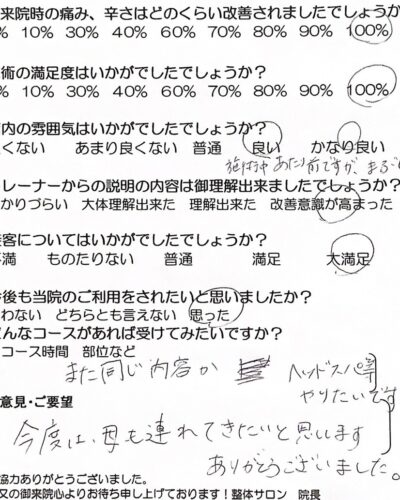 来院時の痛み、辛さはどのくらい改善されましたでしょうか
% 10% 30% 40% 60% 70% 80% 90% 100%
術の満足度はいかがでしたでしょうか?
% 10% 30% 40% 60% 70% 80% 90% 100%
内の雰囲気はいかがでしたでしょうか?
くない あまり良くない 普通 良い かなり良い
施術中あたり前ですが、まるで
レーナーからの説明の内容は御理解出来ましたでしょうか?
かりづらい 大体理解出来た 理解出来た 改善意識が高まった
接客についてはいかがでしたでしょうか?
満 ものたりない 普通 満足 大満足
今後も当院のご利用をされたいと思いましたか?
わない どちらとも言えない 思った
どんなコースがあれば受けてみたいですか?
コース時間 部位など
また同じ内容か ヘッドスパ等
やりたいです
意見・ご要望
今度は、母も連れてきたいと思います
ありがとうございました。
協力ありがとうございました。
又の御来院心よりお待ち申し上げております!整体サロン 院長